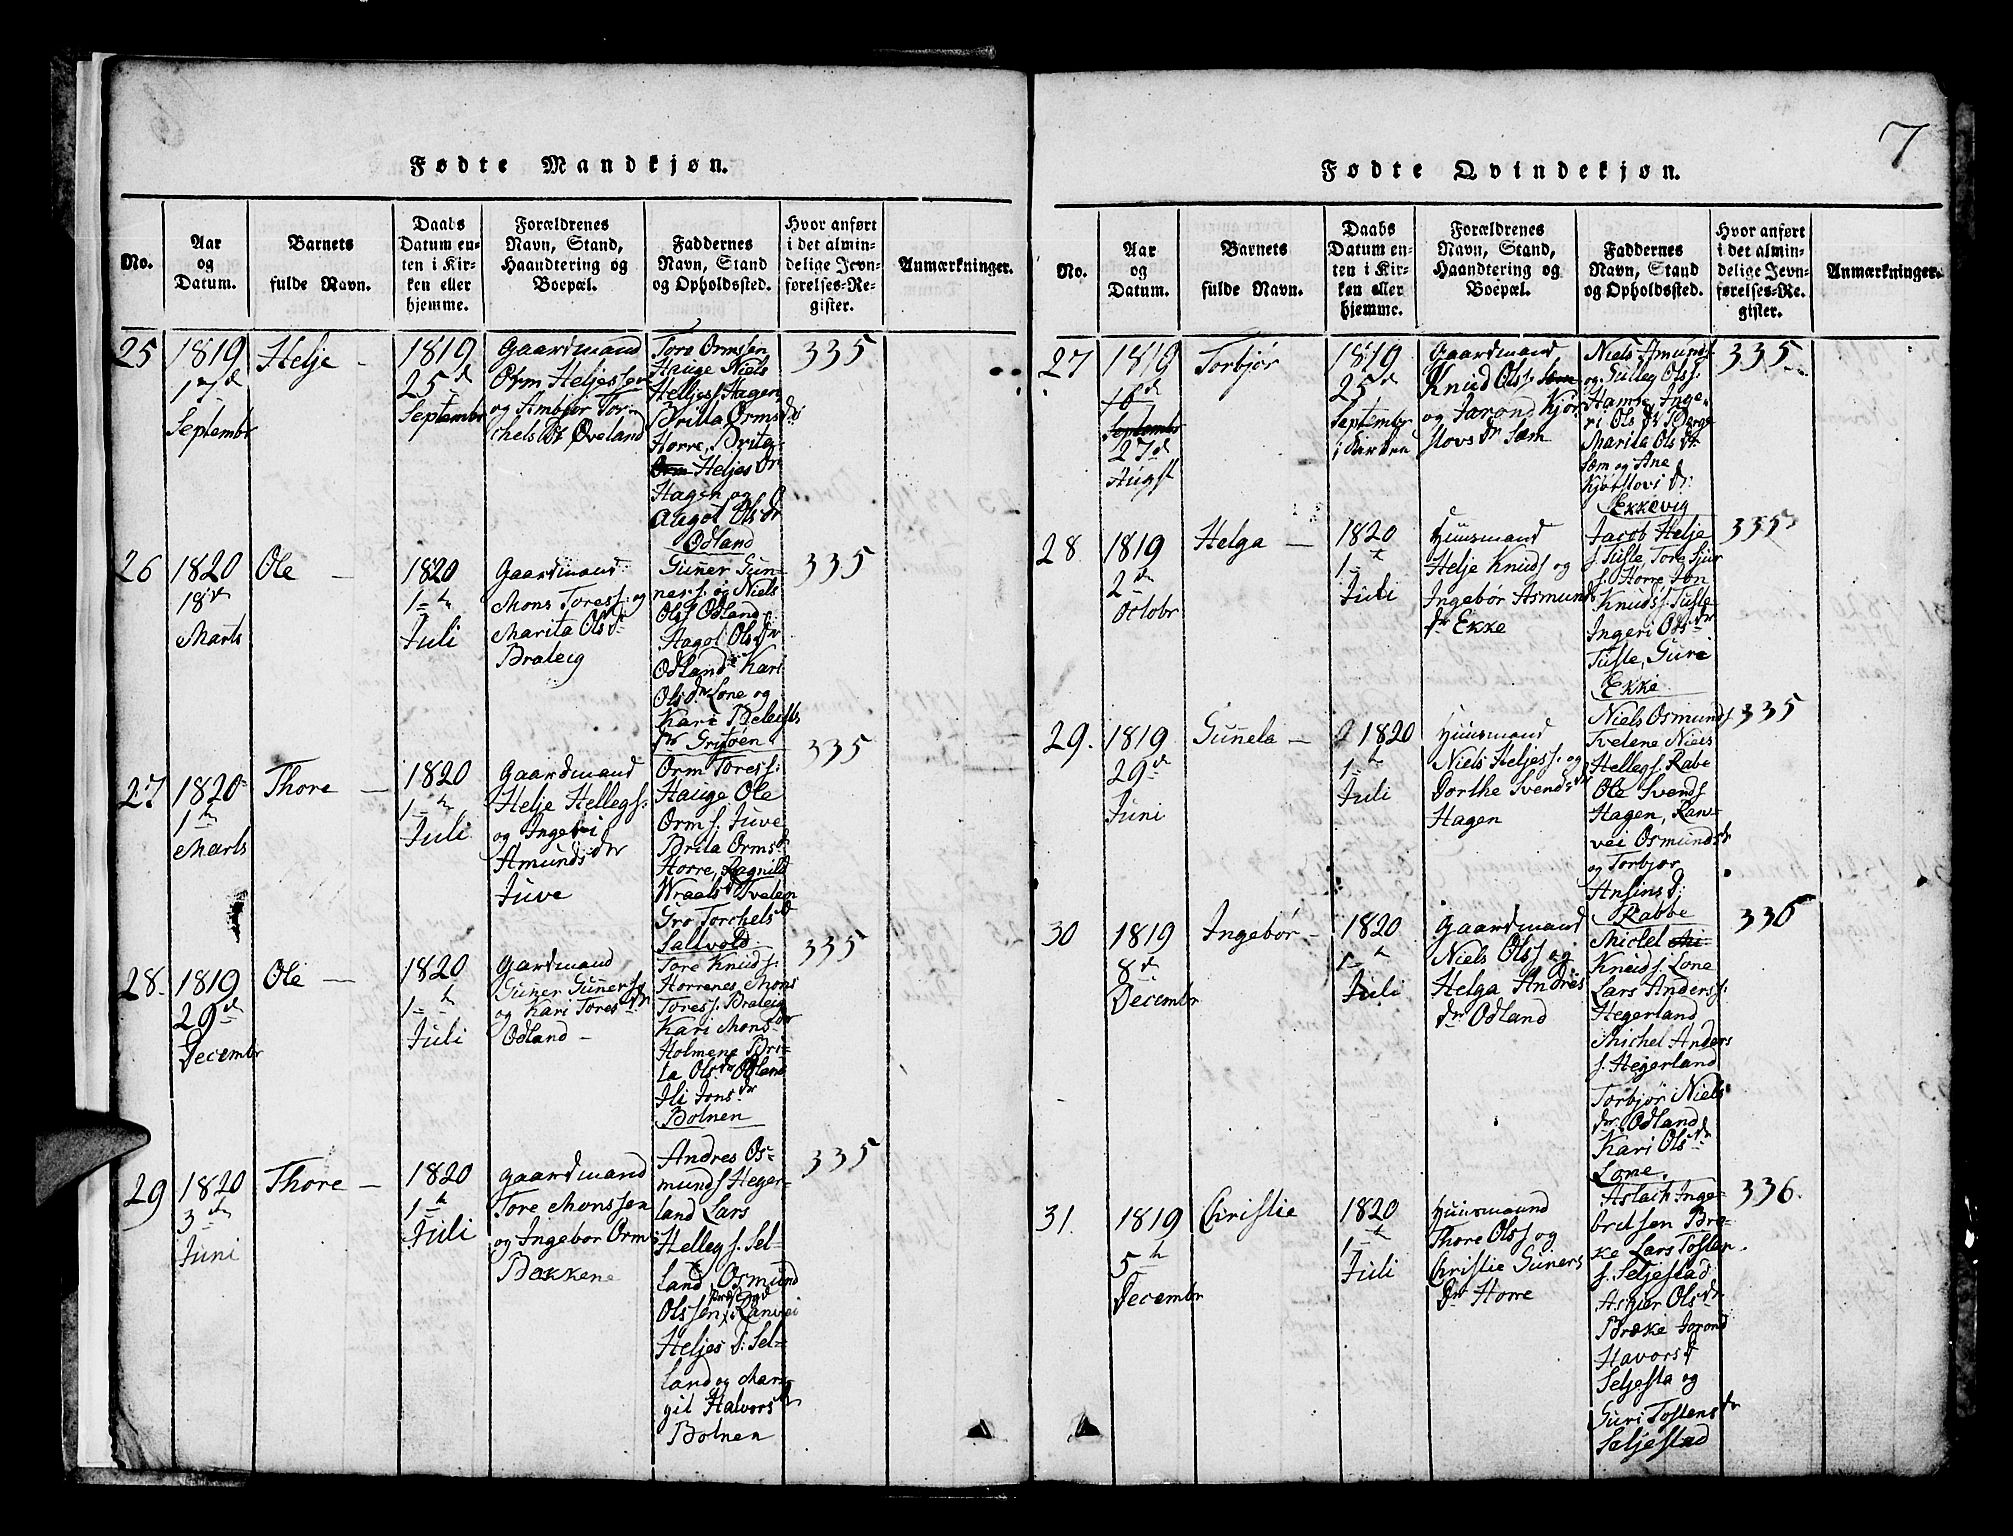 Fødte Mandkjøn.
No.
Aar
og
Datum.
Barnets
fulde Navn.
Daabs
Datum en-
ten i Kir-
ken eller
hjemme.
Forældrenes
Navn, Stand,
Haandtering og
Boepæl.
Faddernes
Navn, Stand
og Opholdssted.
Hvor anført
i det almin-
delige Jevn-
førelses-Re-
gister.
Anmærkninger.
25
1819
17d
Septembr
Helje -
1819
25d
Septembr
Gaardmand
Orm Heljessen
og Ambjør Tor-
chels Dr Øveland
Tore Ormssen
Hauge Niels
Heljes s Hagen
Brita Orms dr
Horre, Brita
Orm Heljes Dr
Hagen og
Augot Ols dr
Odland
335
26
1820
18de
Marts
Ole -
1820
1te
Juli
Gaardmand
Mons Toress: og
Marita Ols Dr
Braleig
Guñer Gun-
ners. og Niels
Olss Odland
Hagot Ols dr
Odland Kari
Ols dr Lone og
Kari
dr Gritøen
335
27
1820
1te
Marts
Thore -
1820
1te
Juli
Gaardmand
Helje Hellegs:
og Ingebri
Amunds dr
Juve
Orm Toress:
Hauge Ole
Orm s. Juve
Brita Orms d
Horre, Ragnild
Wraals d Tvelen
Gro Torchels d
Sallvold
335
28.
1819
29d
Decembr
Ole -
1820
1te
Juli
Gardmand
Guñer Guñers
og Kari Tores dr
Odland -
Tore Knuds.
Horrenes Mons
Toress. Braleig
Kari Mons dr
Holmene Bri-
ta Ols dr Odland
Ili Jons dr
Bolnen
335
29
1820
3de
Juni
Thore -
1820
1te
Juli
Gaardmand
Tore Monssen
og Ingebor Orms
Bakkene
Andres Os-
munds Heger-
land Lars
Helleg s. Sel-
land, Osmund
Olssen, Ranvei
Heljes d: Sel-
land og Mar-
git Halvors d
Bolnen
335
7
Fødte Qvindekjøn.
No.
Aar
og
Datum.
Barnets
fulde Navn.
Daabs
Datum en-
ten i Kir-
ken eller
hjemme.
Forældrenes
Navn, Stand,
Haandtering og
Boepæl.
Faddernes
Navn, Stand
og Opholdssted.
Hvor anført
i det almin-
delige Jevn-
førelses-Re-
gister.
Anmærkninger.
27
1819
16d
Septembr
27d
Augst
Torbjør
1819
25de
Septembr
i Kirken
Gaardmand
Knud Olss. Sæm
og Jarond Kjøt-
slovs dr Sæm
Niels Amunds
og Gulleg Olss.
Hamse, Inge-
ri Ols dr Berge
Marita Ols dr
Sæm og Ane
Kjøtslovs dr:
Ekkevig
335
28
1819
2de
Octobr
Helga -
1820
1te
Juli
Huusmand
Helje Knuds og
Ingebør Asmunds
dr Ekke
Jacob Helje
s. Tusle Tore Sjur
s. Horre Jon
Knuds s. Tusle
Ingeri Ols dr
Tusle, Guri
Ekke
335
29.
1819
29de
Juni
Guñela -
1820
1te
Juli
Huusmand
Niels Heljess. og
Dorthe Svends dr
Hagen
Niels Osmunds
Tvelene Niels
Hellegs. Rabe
Ole Svends
Hagen, Ran-
vei Osmunds dr
og Torbjør
Ansins d:
Rabbe
335
30
1819
8de
Decembr
Ingebør -
1820
1te
Juli
Gaardmand
Niels Olss og
Helga Andres
dr Odland
Michel Mi-
Knuds s. Lone
Lars Anderss.
Hegerland
Michel Anders
s. Hegerland
Torbjør Niels
dr Odland
Kari Ols dr
Lone.
336
31.
1819
5te
Decembr
Christie
1820
1te
Juli
Huusmaund
Thore Olss og
Christie Guners
Dr Horre
Aslach Inge-
britsen Bre-
ke Lars Tosten
s. Seljestad
Asbiør Ols dr
Bræke Jorond
Havors d
Seljesta og
Guri Tostens dr
Seljestad
336.